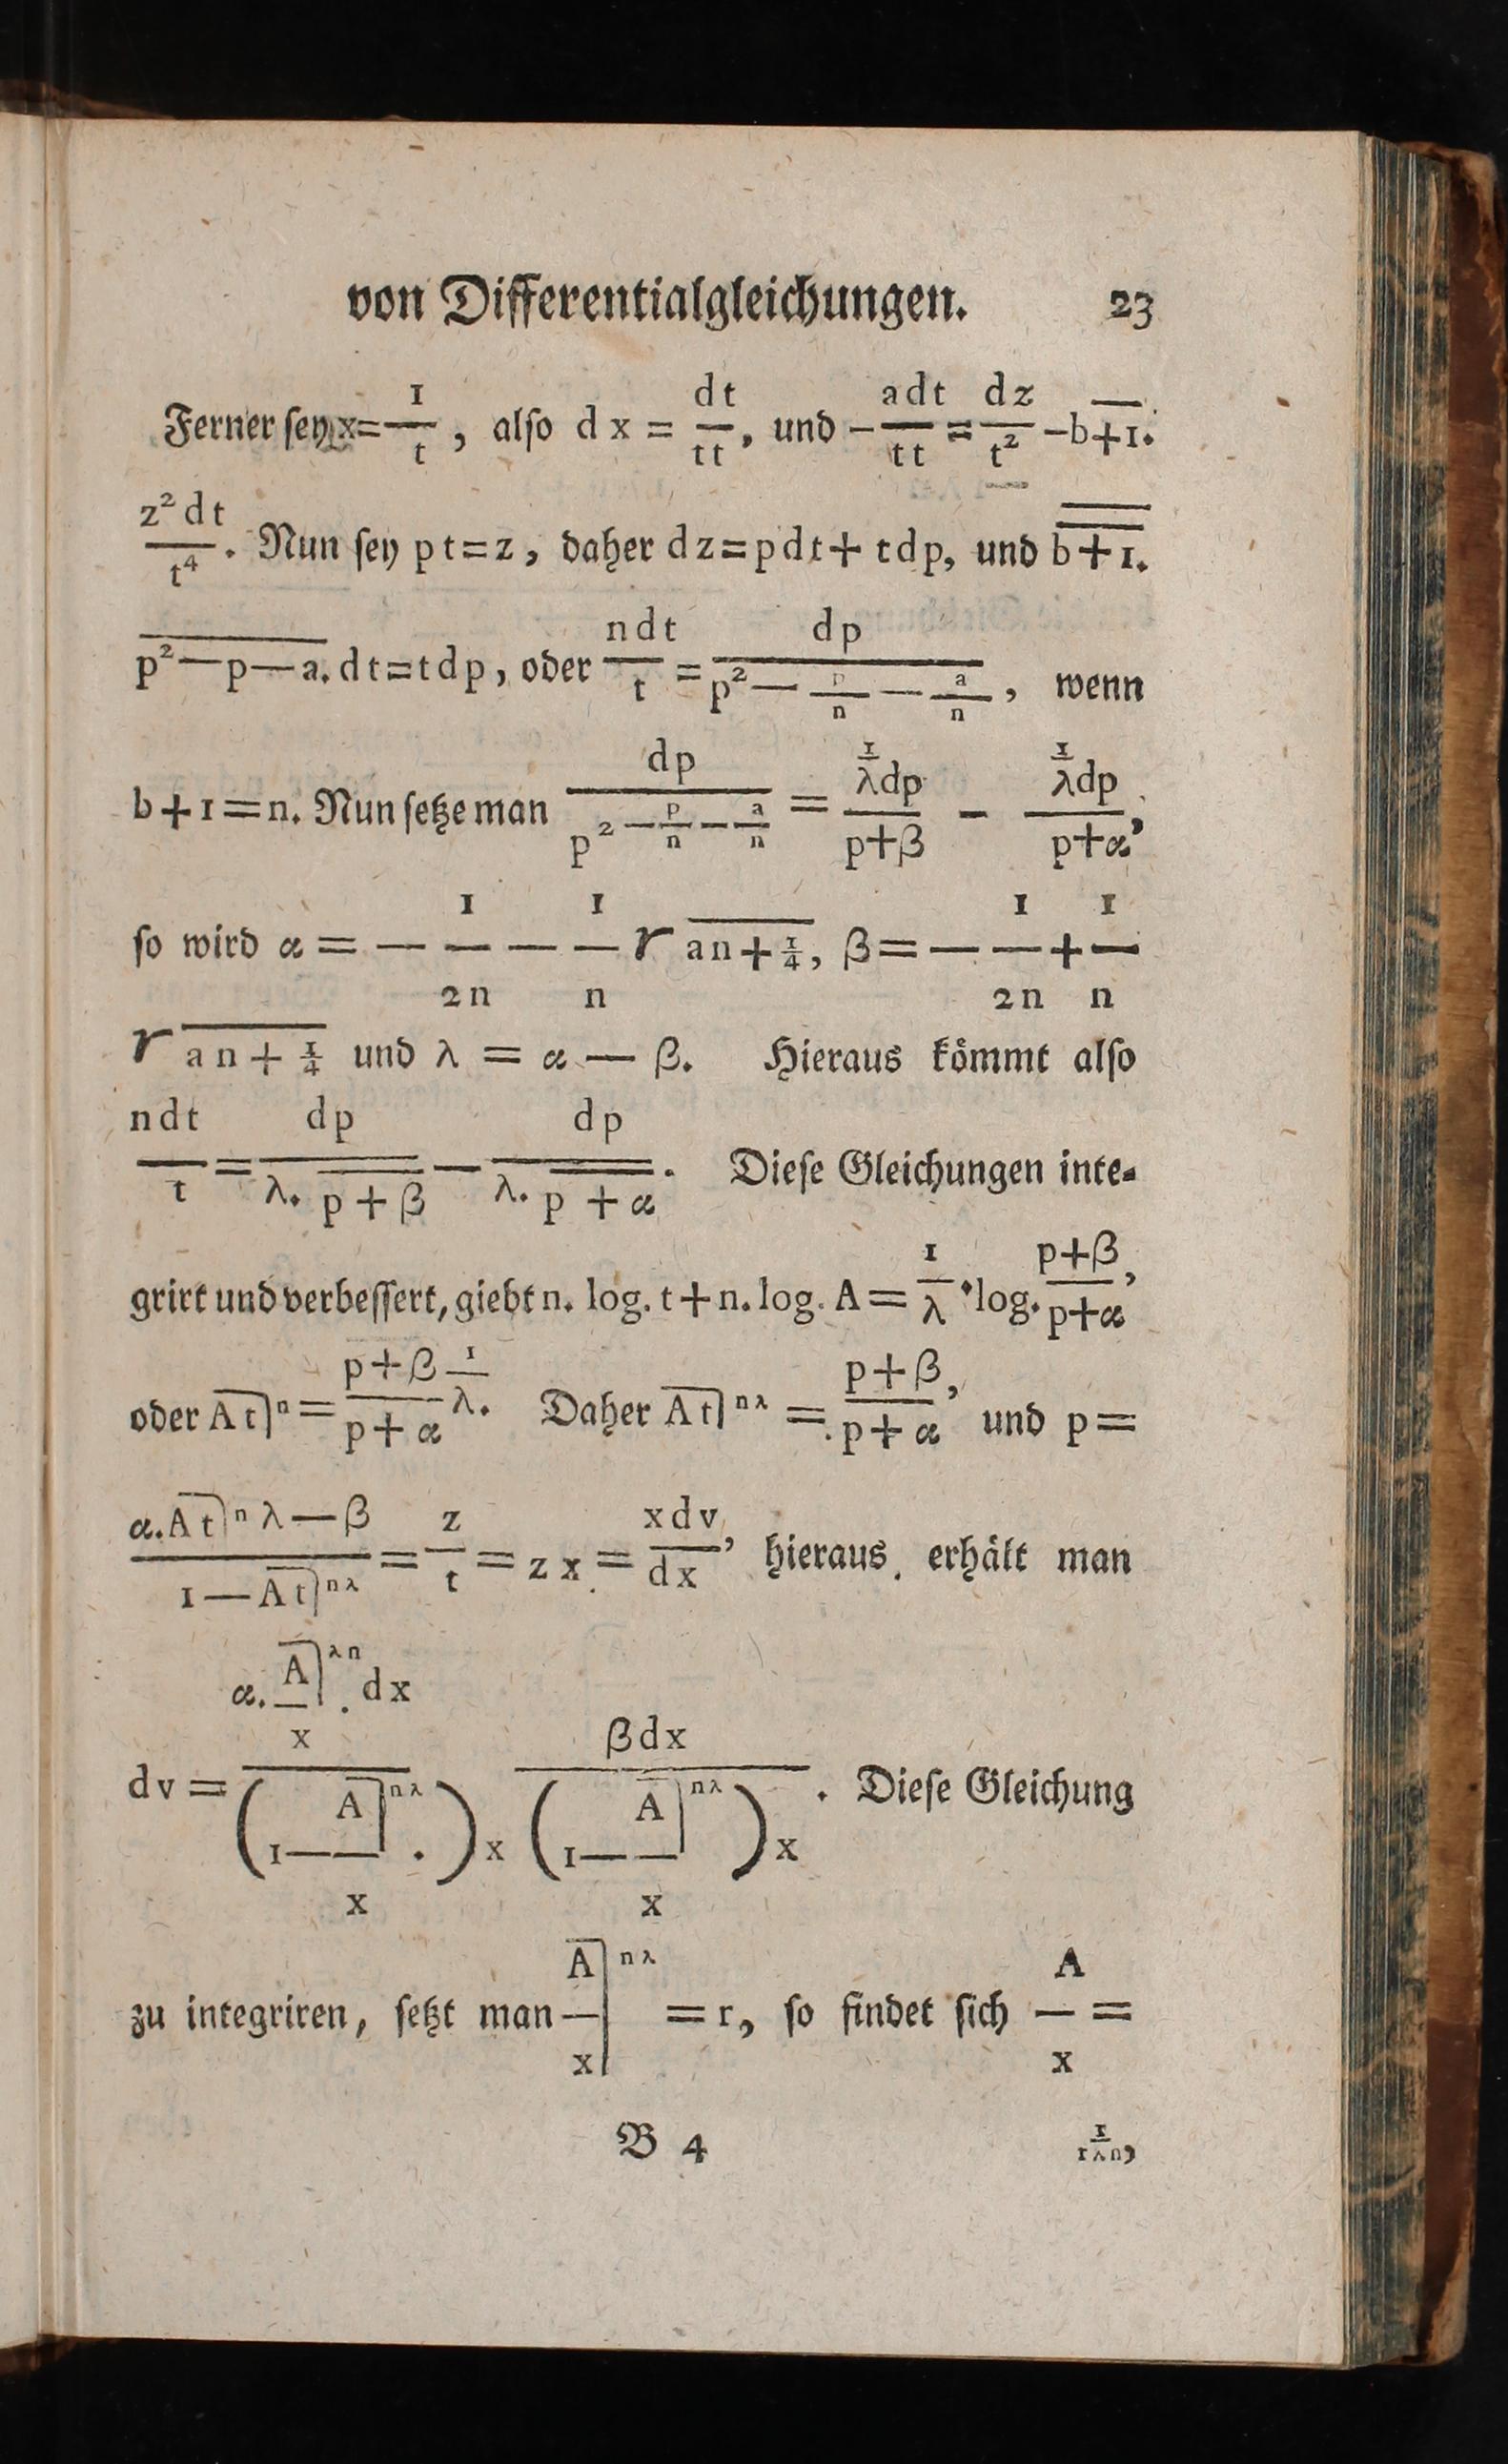 von Differentialgleichungen. 23
Ferner ſey x = 1/t, alſo dx = dt/tt, und − adt/tt = dz/t² − b+1.
z²dt/t⁴. Nun ſey pt=z, daher dz=pdt+tdp, und b+1.
p²—p—a.dt=tdp, oder ndt/t = dp/(p² — p/n — a/n), wenn
b+1=n. Nun ſetze man dp/(p² — p/n — a/n) = (1/λ dp)/(p+β) − (1/λ dp)/(p+α),
ſo wird α = — 1/2n — 1/n r an+¼, β = — 1/2n + 1/n
r an+¼ und λ = α — β. Hieraus kömmt alſo
ndt/t = dp/(λ. p+β) — dp/(λ. p+α). Dieſe Gleichungen inte⸗
grirt und verbeſſert, giebt n. log. t + n. log. A = 1/λ . log. (p+β)/(p+α),
oder At]ⁿ = (p+β)/(p+α) 1/λ. Daher At]^nλ = (p+β)/(p+α), und p =
(α.At]^n λ—β)/(1—At]^nλ) = z/t = zx = xdv/dx, hieraus erhält man
dv = (α. A/x]^λn . dx)/((1—A/x]^nλ . )x) βdx/((1—A/x]^nλ)x). Dieſe Gleichung
zu integriren, ſetzt man A/x]^nλ = r, ſo findet ſich A/x =
B 4 r^(1/λn),